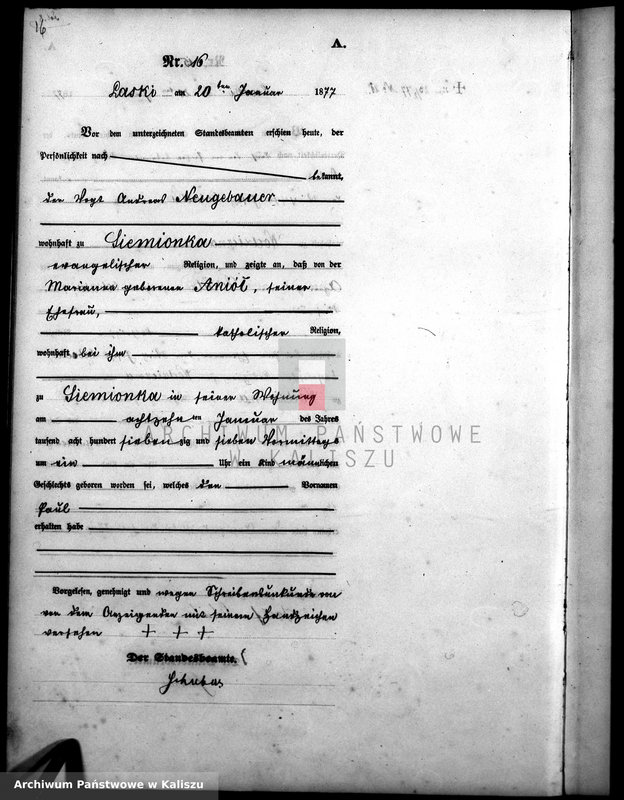 16
A.
Nr. 16
Laski am 20ten Januar 1877
Vor dem unterzeichneten Standesbeamten erschien heute, der
Persönlichkeit nach
bekannt,
der Vogt Andreas Neugebauer
wohnhaft zu Siemionka
evangelischer Religion, und zeigte an, daß von der
Marianna geborenen Aniół, seiner
Ehefrau,
katholischer Religion,
wohnhaft bei ihm
zu Siemionka in seiner Wohnung
am achtzehnten Januar des Jahres
tausend acht hundert siebenzig und sieben Vormittags
um ein Uhr ein Kind männlichen
Geschlechts geboren worden sei, welches den Vornamen
Paul
erhalten habe
Vorgelesen, genehmigt und wegen Schreibensunkunde
von dem Anzeigenden mit seinem Handzeichen
versehen + + +
Der Standesbeamte.
ARCHIWUM PAŃSTWOWE
W KALISZU
Archiwum Państwowe w Kaliszu